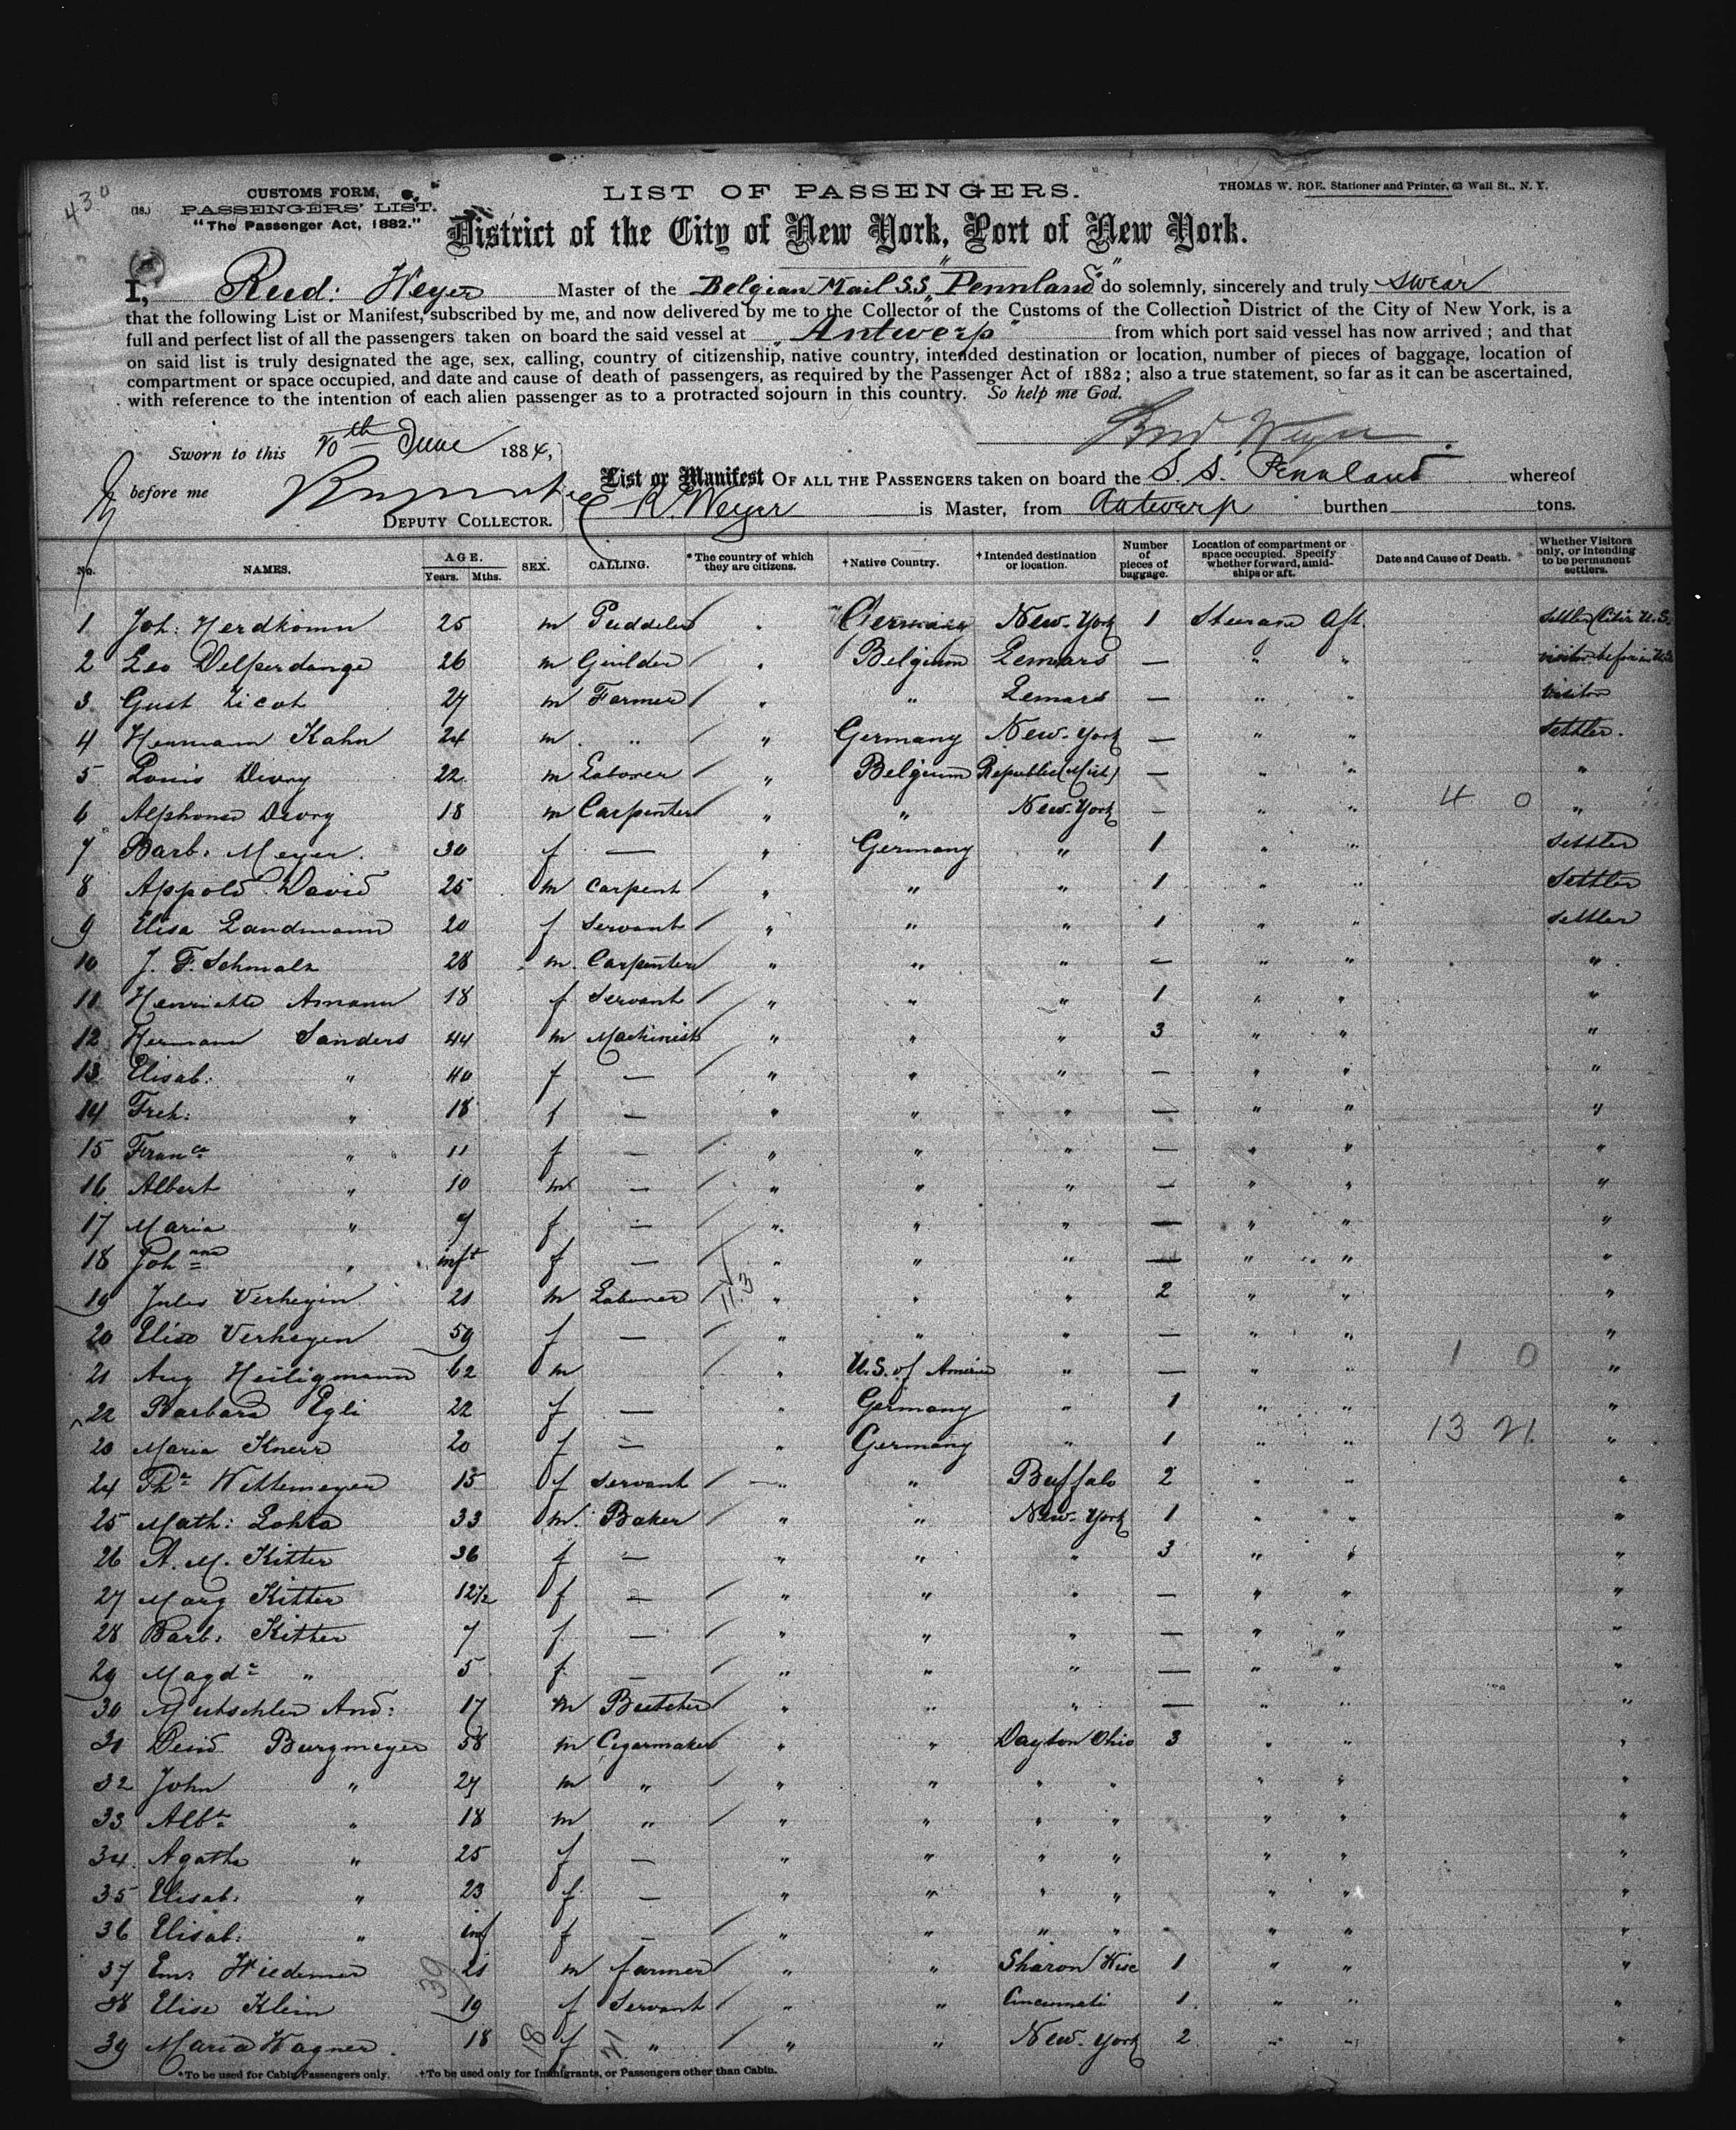 430
CUSTOMS FORM,
(18.) PASSENGERS' LIST.
"The Passenger Act, 1882."
LIST OF PASSENGERS.
THOMAS W. ROE, Stationer and Printer, 63 Wall St., N. Y.
District of the City of New York, Port of New York.
I, Rud: Weyer Master of the Belgian Mail S.S. "Pennland" do solemnly, sincerely and truly swear
that the following List or Manifest, subscribed by me, and now delivered by me to the Collector of the Customs of the Collection District of the City of New York, is a
full and perfect list of all the passengers taken on board the said vessel at "Antwerp" from which port said vessel has now arrived; and that
on said list is truly designated the age, sex, calling, country of citizenship, native country, intended destination or location, number of pieces of baggage, location of
compartment or space occupied, and date and cause of death of passengers, as required by the Passenger Act of 1882; also a true statement, so far as it can be ascertained,
with reference to the intention of each alien passenger as to a protracted sojourn in this country. So help me God.
Rud Weyer
Sworn to this 10th June 1884,
before me
DEPUTY COLLECTOR.
List or Manifest OF ALL THE PASSENGERS taken on board the S. S. Pennland whereof
R. Weyer is Master, from Antwerp burthen tons.
No. NAMES. AGE. Years. Mths. SEX. CALLING. *The country of which they are citizens. †Native Country. †Intended destination or location. Number of pieces of baggage. Location of compartment or space occupied. Specify whether forward, amidships or aft. Date and Cause of Death. Whether Visitors only, or intending to be permanent settlers.
1 Joh: Herdkomn 25 m Puddeler Germany New-York 1 Steerage Aft. Settler (Citiz U.S.
2 Leo Delperdange 26 m Guilder " Belgium Lemars — " " visitor before in U.S.
3 Gust Licot 27 m Farmer " " Lemars — " " Visitor
4 Hermann Kahn 24 m " " Germany New-York — " " Settler.
5 Louis Devry 22 m Laborer " Belgium Republic (Mich) — " " "
6 Alphonse Devry 18 m Carpenter " " New-York — " " 4 0 "
7 Barb: Meyer. 30 f — " Germany " 1 " " Settler
8 Appold David 25 m Carpent " " " 1 " " Settler
9 Elisa Landmann 20 f Servant " " " 1 " " Settler
10 J. F. Schmalz 28 m. Carpenter " " " — " " "
11 Henriette Amann 18 f Servant " " " 1 " " "
12 Hermann Sanders 44 m Machinist " " " 3 " " "
13 Elisab: " 40 f — " " " — " " "
14 Freh: " 18 f — " " " — " " "
15 Franca " 11 f — " " " — " " "
16 Albert " 10 m — " " " — " " "
17 Maria " 9 f — " " " — " " "
18 Johnna " inft f — " " " — " " "
19 Jules Verheyin 21 m Laborer 11.3 " " " 2 " " "
20 Elise Verheyen 59 f — " " " — " " "
21 Aug Heiligmann 62 m " U.S. of America " — " " 1 0 "
22 Barbara Egli 22 f — " Germany " 1 " " "
23 Maria Knerr 20 f — " Germany " 1 " " 13 21 "
24 Tha Wittemeyer 15 f Servant " " Buffalo 2 " " "
25 Math: Lohta 33 m. Baker " " New-York 1 " " "
26 A. M. Kitter 36 f — " " " 3 " " "
27 Marg Kitter 12 1/2 f — " " " — " " "
28 Barb: Kitter 7 f — " " " — " " "
29 Magda " 5 f — " " " — " " "
30 Mutschler And: 17 m Butcher " " " — " " "
31 Deid Burgmeyer 58 m Cigarmaker " " Dayton Ohio 3 " " "
32 John " 27 m " " " " " " " "
33 Albt " 18 m " " " " " " " "
34 Agatha " 25 f — " " " " " " "
35 Elisab: " 23 f — " " " " " " "
36 Elisab: " inf f — " " " " " " "
37 Em: Wiedemer 21 m farmer " " Sharon Wisc 1 " " "
38 Elise Klein 19 f Servant " " Cincinnati 1 " " "
39 Maria Wagner. 18 f " " " New-York 2 " " "
39 18 21
*To be used for Cabin Passengers only. †To be used only for Immigrants, or Passengers other than Cabin.